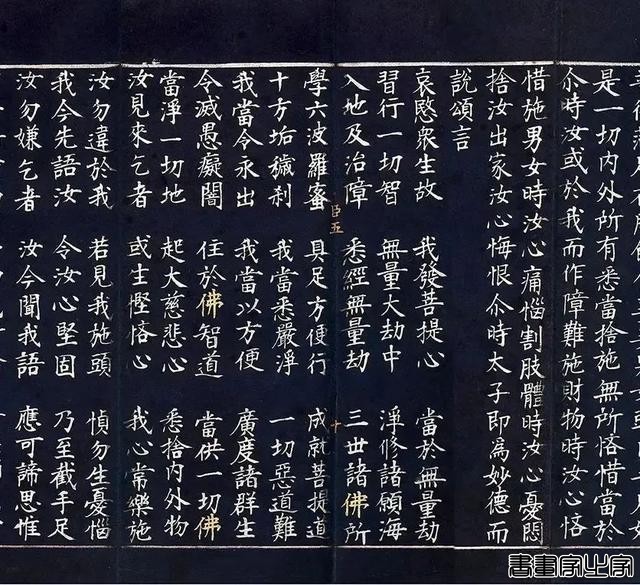 是一切內外所有悉當捨施無所悋惜當於
尒時汝或於我而作障難施財物時汝心悋
惜施男女時汝心痛惱割肢體時汝心憂悶
捨汝出家汝心悔恨尒時太子即為妙德而
說頌言
哀愍眾生故 我發菩提心 當於無量劫
習行一切智 無量大劫中 淨修諸願海
入地及治障 悉經無量劫 三世諸佛所
臣五 十
學六波羅蜜 具足方便行 成就菩提道
十方垢穢剎 我當悉嚴淨 一切惡道難
我當令永出 我當以方便 廣度諸群生
令滅愚癡闇 住於佛智道 當供一切佛
當淨一切地 起大慈悲心 悉捨內外物
汝見來乞者 或生慳悋心 我心常樂施
汝勿違於我 若見我施頭 慎勿生憂惱
我今先語汝 令汝心堅固 乃至截手足
汝勿嫌乞者 汝今聞我語 應可諦思惟
書畫家之家